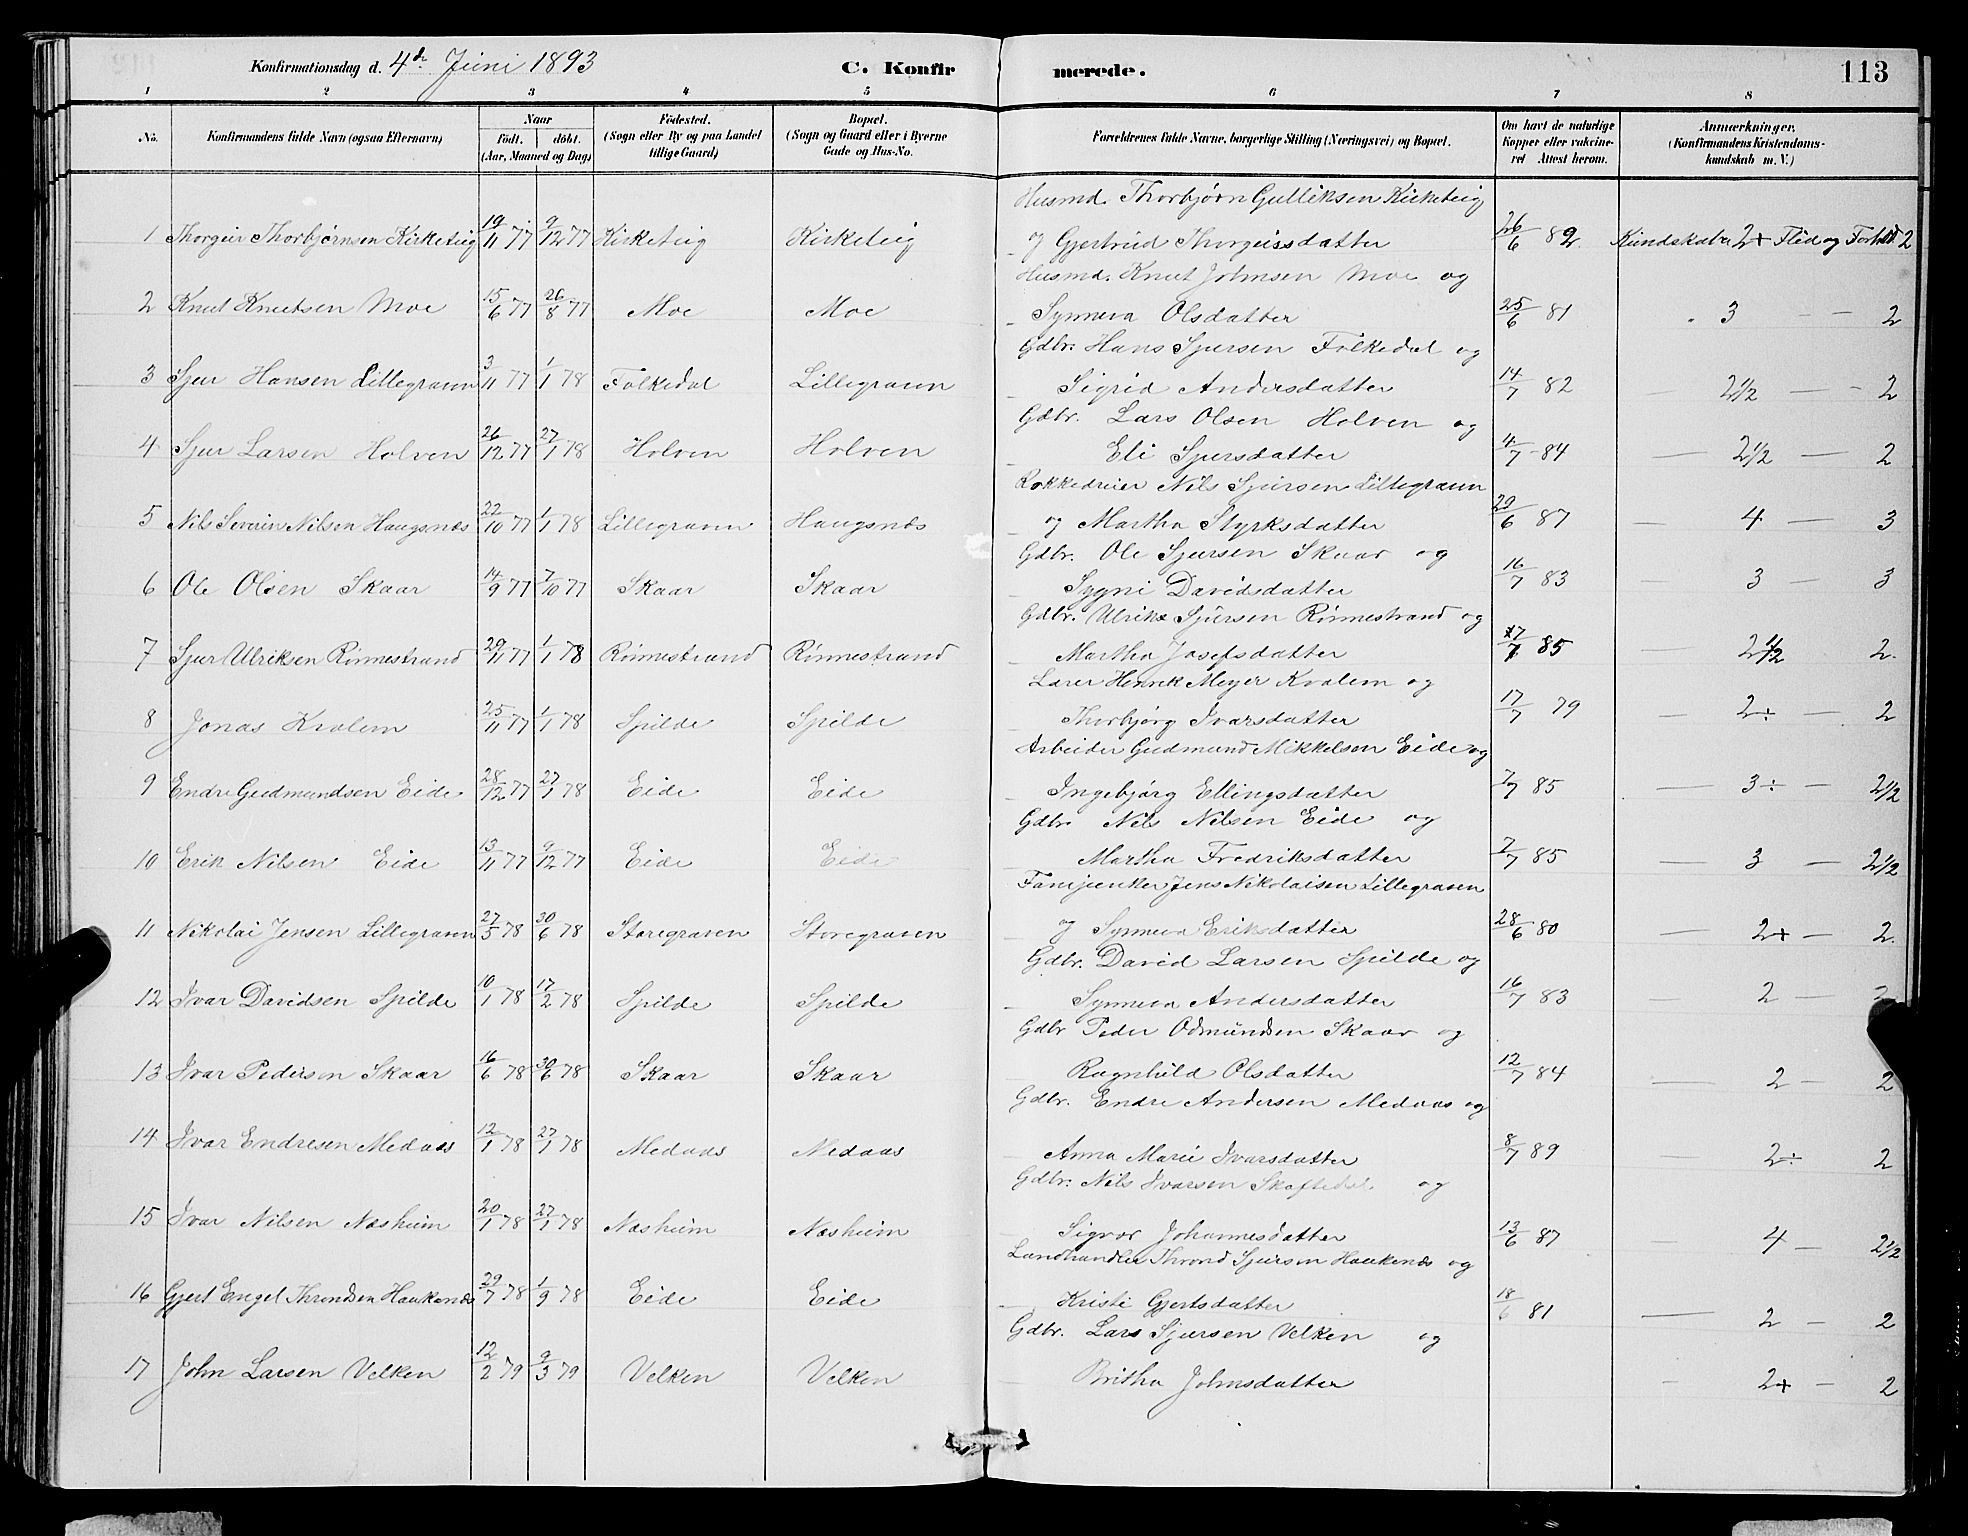 Konfirmationsdag d. 4de Juni 1893 C. Konfirmerede. 113
1 2 3 4 5 6 7 8
No. Konfirmandens fulde Navn (ogsaa Efternavn) Naar født. døbt. (Aar, Maaned og Dag) Fødested. (Sogn eller By og paa Landet tillige Gaard) Bopæl. (Sogn og Gaard eller i Byerne Gade og Hus-No. Forældrenes fulde Navne, borgerlige Stilling (Næringsvei) og Bopæl. Om havt de naturlige Kopper eller vakcineret Attest herom. Anmærkninger. (Konfirmandens Kristendomskundskab m. V.)
Husmd. Thorbjørn Gulliksen Kirketeig
1 Thorgeir Thorbjørnsen Kirketeig 19/11 77 9/12 77 Kirketeig Kirketeig og Gjertrud Thorgeirsdatter 26/6 82 Kundskaber 2+ Flid og Forhold 2
Husmd. Knut Johnsen Moe og
2 Knut Knutsen Moe 15/6 77 26/8 77 Moe Moe Synneva Olsdatter 25/6 81 " 3 — 2
Gdbr. Hans Sjursen Folkedal og
3 Sjur Hansen Lillegraven 3/11 77 1/1 78 Folkedal Lillegraven Sigrid Andersdatter 14/7 82 — 2 1/2 — 2
Gdbr. Lars Olsen Holven og
4 Sjur Larsen Holven 26/12 77 27/1 78 Holven Holven Eli Sjursdatter 4/7 84 — 2 1/2 — 2
Rokkedreier Nils Sjursen Lillegraven
5 Nils Severin Nilsen Haugsnæs 22/10 77 1/1 78 Lillegraven Haugsnæs og Martha Styrksdatter 20/6 87 — 4 — 3
Gdbr. Ole Sjursen Skaar og
6 Ole Olsen Skaar 14/9 77 7/10 77 Skaar Skaar Sygni Davidsdatter 16/7 83 — 3 — 3
Gdbr. Ulrik Sjursen Rønnestrand og
7 Sjur Ulriksen Rønnestrand 29/11 77 1/1 78 Rønnestrand Rønnestrand Martha Josefsdatter 17/7 85 — 2 1/2 2.
Lærer Henrik Meyer Kvalem og
8 Jonas Kvalem 25/11 77 1/1 78 Spilde Spilde Thorbjørg Ivarsdatter 17/7 79 — 2÷ — 2
Arbeider Gudmund Mikkelsen Eide og
9 Endre Gudmundsen Eide 28/12 77 27/1 78 Eide Eide Ingebjørg Ellingsdatter 7/7 85 — 3÷ — 2 1/2
Gdbr. Nils Nilsen Eide og
10 Erik Nilsen Eide 13/11 77 9/12 77 Eide Eide Martha Fredriksdatter 7/7 85 — 3 — 2 1/2
Fanejunker Jens Nikolaisen Lillegraven
11 Nikolai Jensen Lillegraven 27/5 78 30/6 78 Storegraven Storegraven og Synneva Eriksdatter 28/6 80 — 2+ — 2.
Gdbr. David Larsen Spilde og
12 Ivar Davidsen Spilde 10/1 78 17/2 78 Spilde Spilde Synneva Andersdatter 16/7 83 — 2 —
Gdbr Peder Odmundsen Skaar og
13 Ivar Pedersen Skaar 16/6 78 30/6 78 Skaar Skaar Ragnhild Olsdatter 12/7 84 — 2 — 2
Gdbr. Endre Andersen Medaas og
14 Ivar Endresen Medaas 12/1 78 27/1 78 Medaas Medaas Anna Marie Ivarsdatter 8/7 89 — 2÷ 2
Gdbr. Nils Ivarsen Skeftedal og
15 Ivar Nilsen Næsheim 20/1 78 27/1 78 Næsheim Næsheim Sigvor Johannesdatter 13/6 87 — 4 — 2 1/2
Landhandler Thrond Sjursen Haukenæs og
16 Gjert Engel Throndsen Haukenæs 29/7 78 1/9 78 Eide Eide Kristi Gjertsdatter 18/6 81 — 2 — 2
Gdbr. Lars Sjursen Velken og
17 John Larsen Velken 12/2 79 9/3 79 Velken Velken Britha Johnsdatter — 2+ — 2